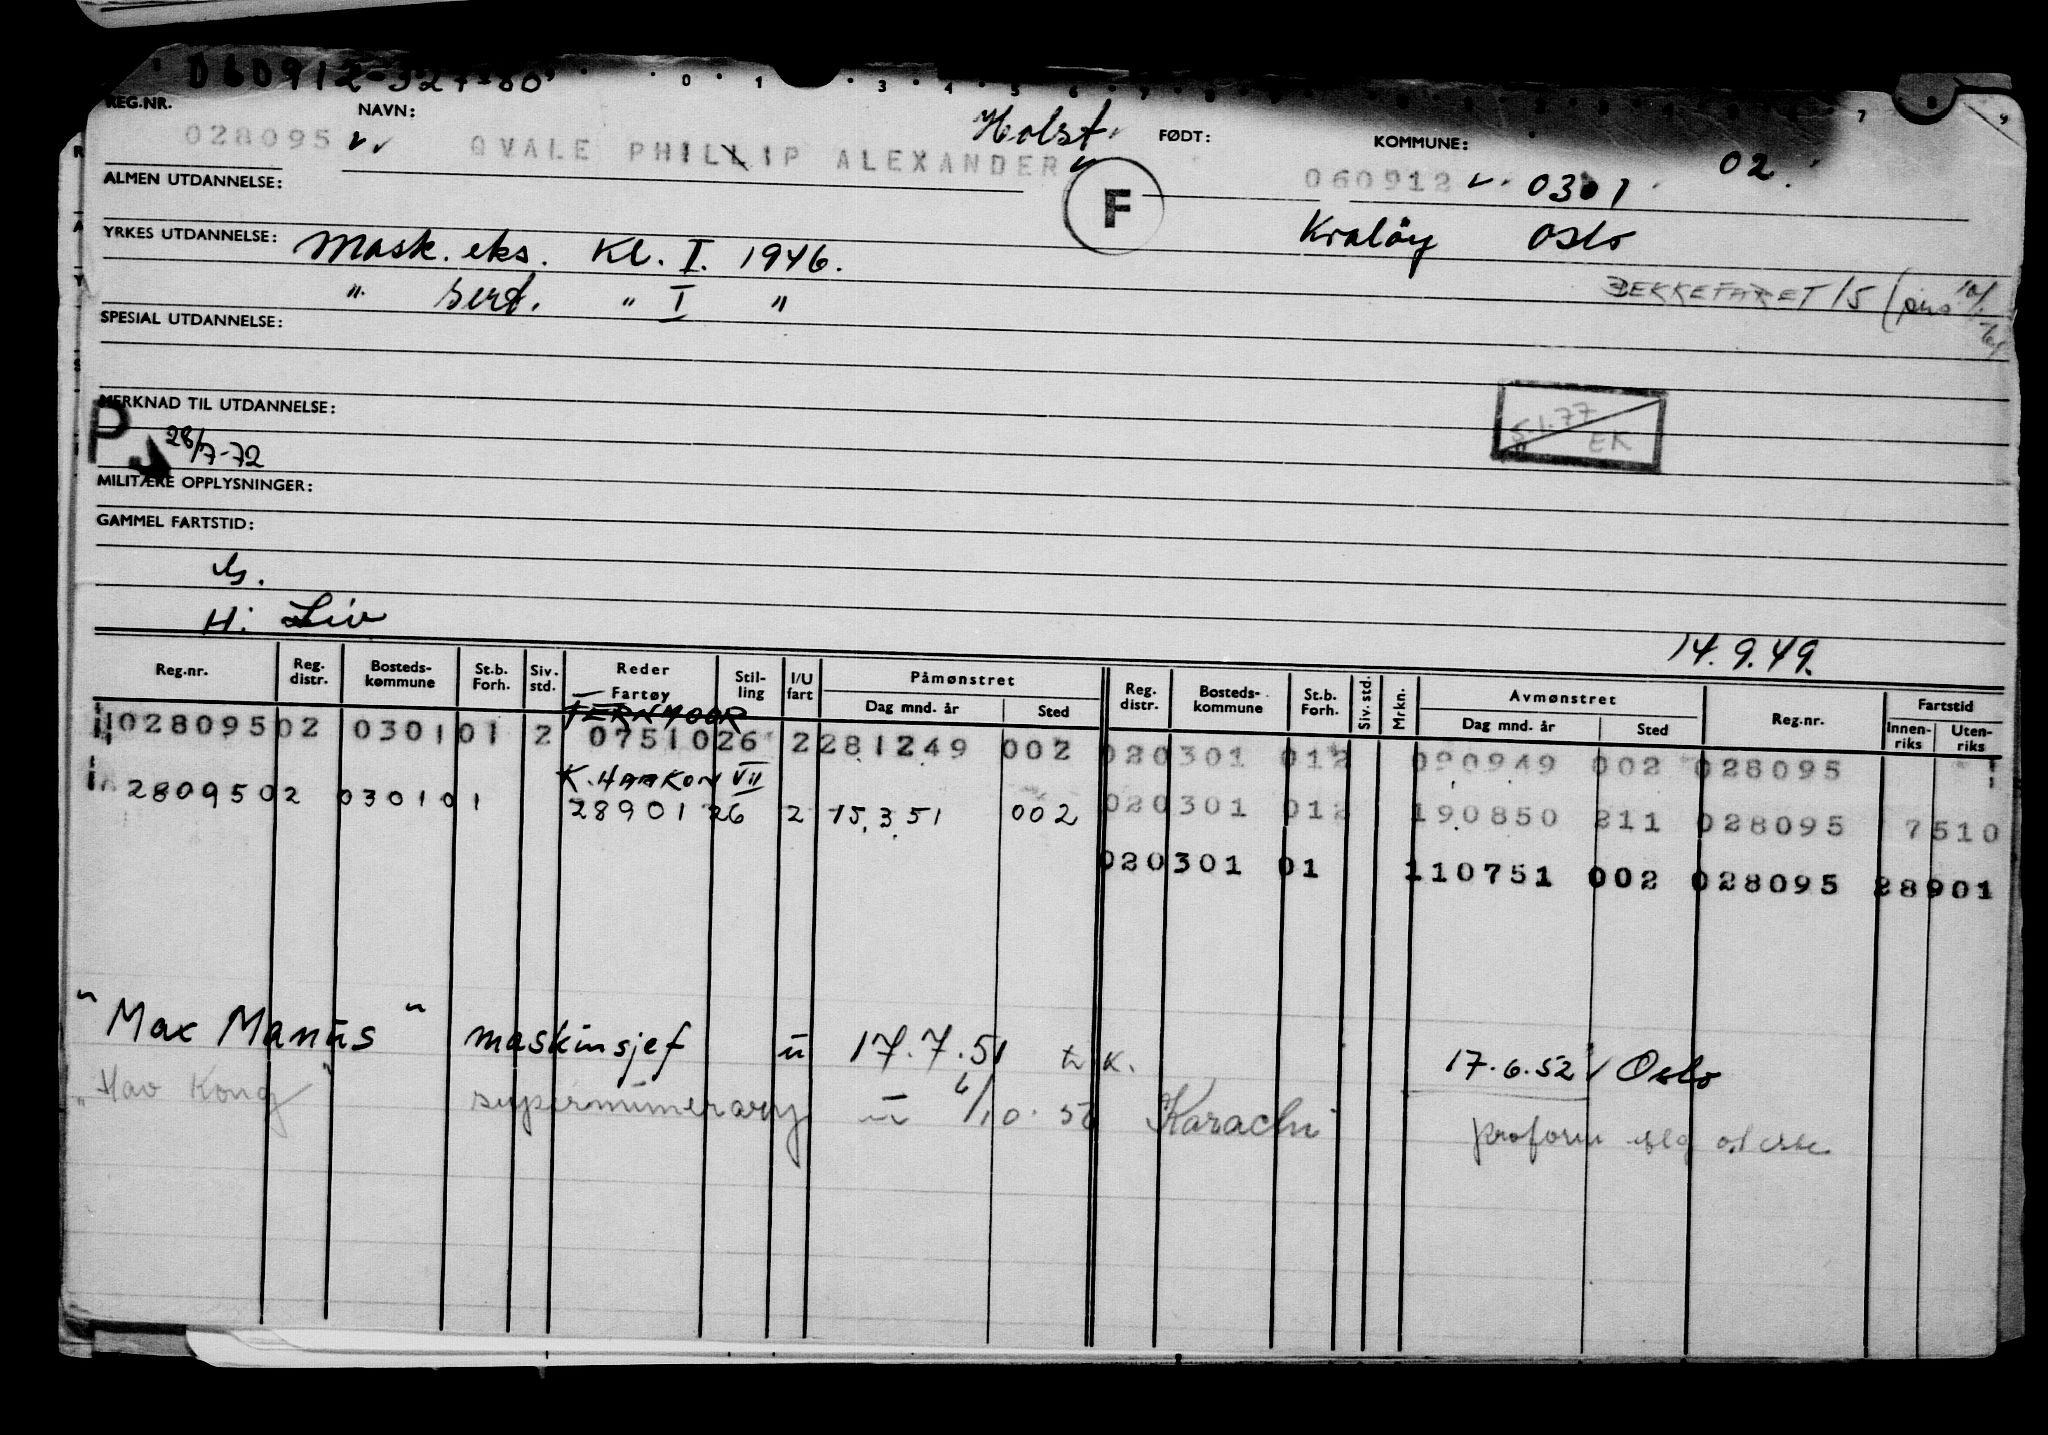 REG.NR.
NAVN:
Holst
FØDT:
KOMMUNE:
02
028095
QVALE PHILLIP ALEXANDER
060912
0301
F
ALMEN UTDANNELSE:
Oslo
YRKES UTDANNELSE: Mask. eks. Kl. I. 1946.
" sert. " I "
BEKKEFARET 15
SPESIAL UTDANNELSE:
MERKNAD TIL UTDANNELSE:
5.1.77
EK
P
28/7-72
MILITÆRE OPPLYSNINGER:
GAMMEL FARTSTID:
H: Liv
14.9.49.
Reg.nr. Reg. distr. Bosteds-kommune St.b. Forh. Siv. std. Reder Fartøy Stil-ling I/U fart Påmønstret Dag mnd. år Sted Reg. distr. Bosteds-kommune St.b. Forh. Siv. std. Mrkn. Avmønstret Dag mnd. år Sted Reg.nr. Fartstid Innen-riks Uten-riks
FERNMOOR
028095 02 0301 01 2 07510 26 2 281249 002 02 0301 01 2 090949 002 028095
K. HAAKON VII
28095 02 0301 01 28901 26 2 15.3.51 002 02 0301 01 2 190850 211 028095 7510
02 0301 01 110751 002 028095 28901
"Max Manus" maskinsjef u 17.7.51 17.6.52 Oslo
"Hav Kong" supernumerary u Karachi